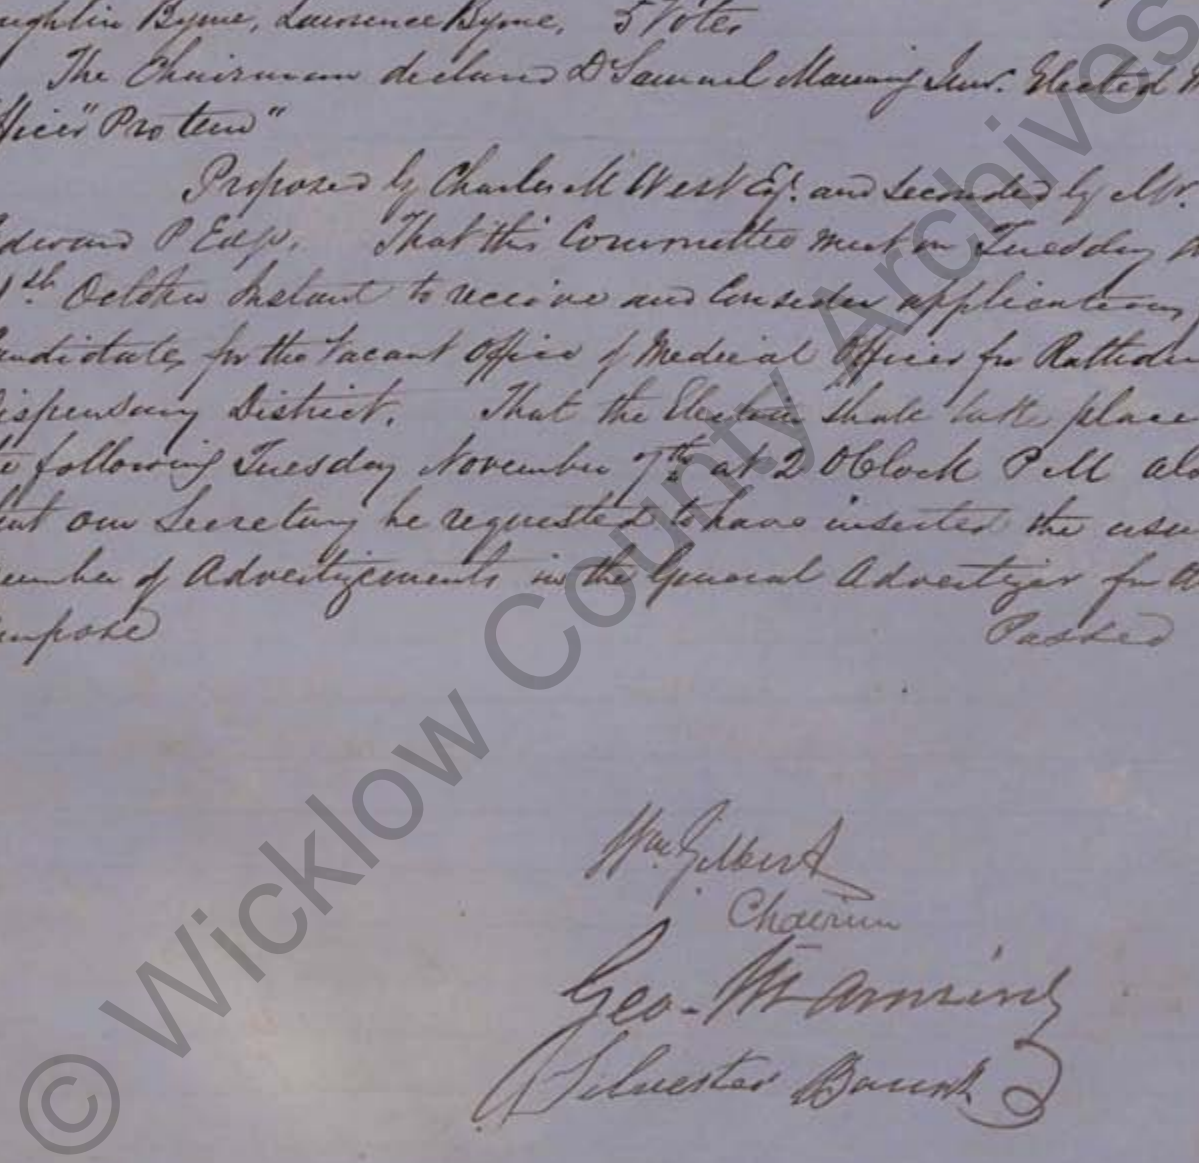 ughlin Byrne, Lawrence Byrne, 5 Votes
The Chairman declared Dr Samuel Manning Junr. Elected M
fficer "Protem"
Proposed by Charles M West Esqr. and seconded by Mr.
dward P That this Committee meet on Tuesday
1st October Instant to receive and Consider applications
andidates for the Vacant Office of Medical Officer for Rathdru
ispensary District. That the Election shall take place
e following Tuesday November 7th at 2 OClock P M als
hat our Secretary be requested to have inserted the usu
umber of Advertizements in the General Advertizer for th
urpose Passed
Wm. Gilbert
Chairmn
Geo. Manning
Silvester
© Wicklow County Archives